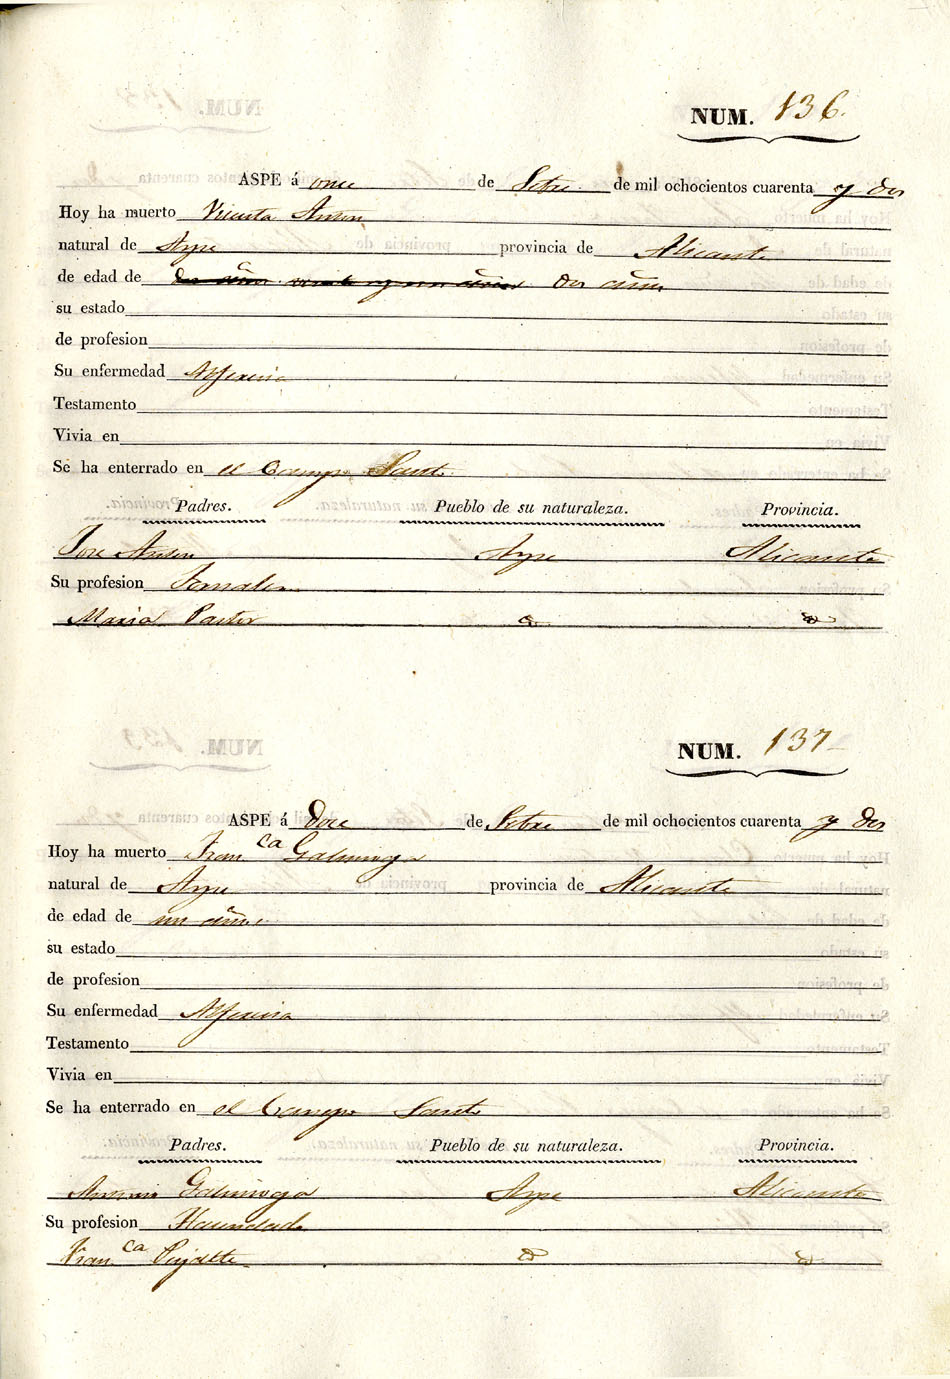 NUM. 136.
ASPE á once de Setre de mil ochocientos cuarenta y dos
Hoy ha muerto Vicenta Anton
natural de Aspe provincia de Alicante
de edad de dos años
su estado
de profesion
Su enfermedad Alferecia
Testamento
Vivia en
Se ha enterrado en el Campo Santo
Padres. Pueblo de su naturaleza. Provincia.
Jose Anton Aspe Alicante
Su profesion Jornalero
Maria Pastor
NUM. 137
ASPE á Doce de Setre de mil ochocientos cuarenta y dos
Hoy ha muerto Franca
natural de Aspe provincia de Alicante
de edad de un año
su estado
de profesion
Su enfermedad Alferecia
Testamento
Vivia en
Se ha enterrado en el Campo Santo
Padres. Pueblo de su naturaleza. Provincia.
Antonio Aspe Alicante
Su profesion Hacendado
Franca Pujalte